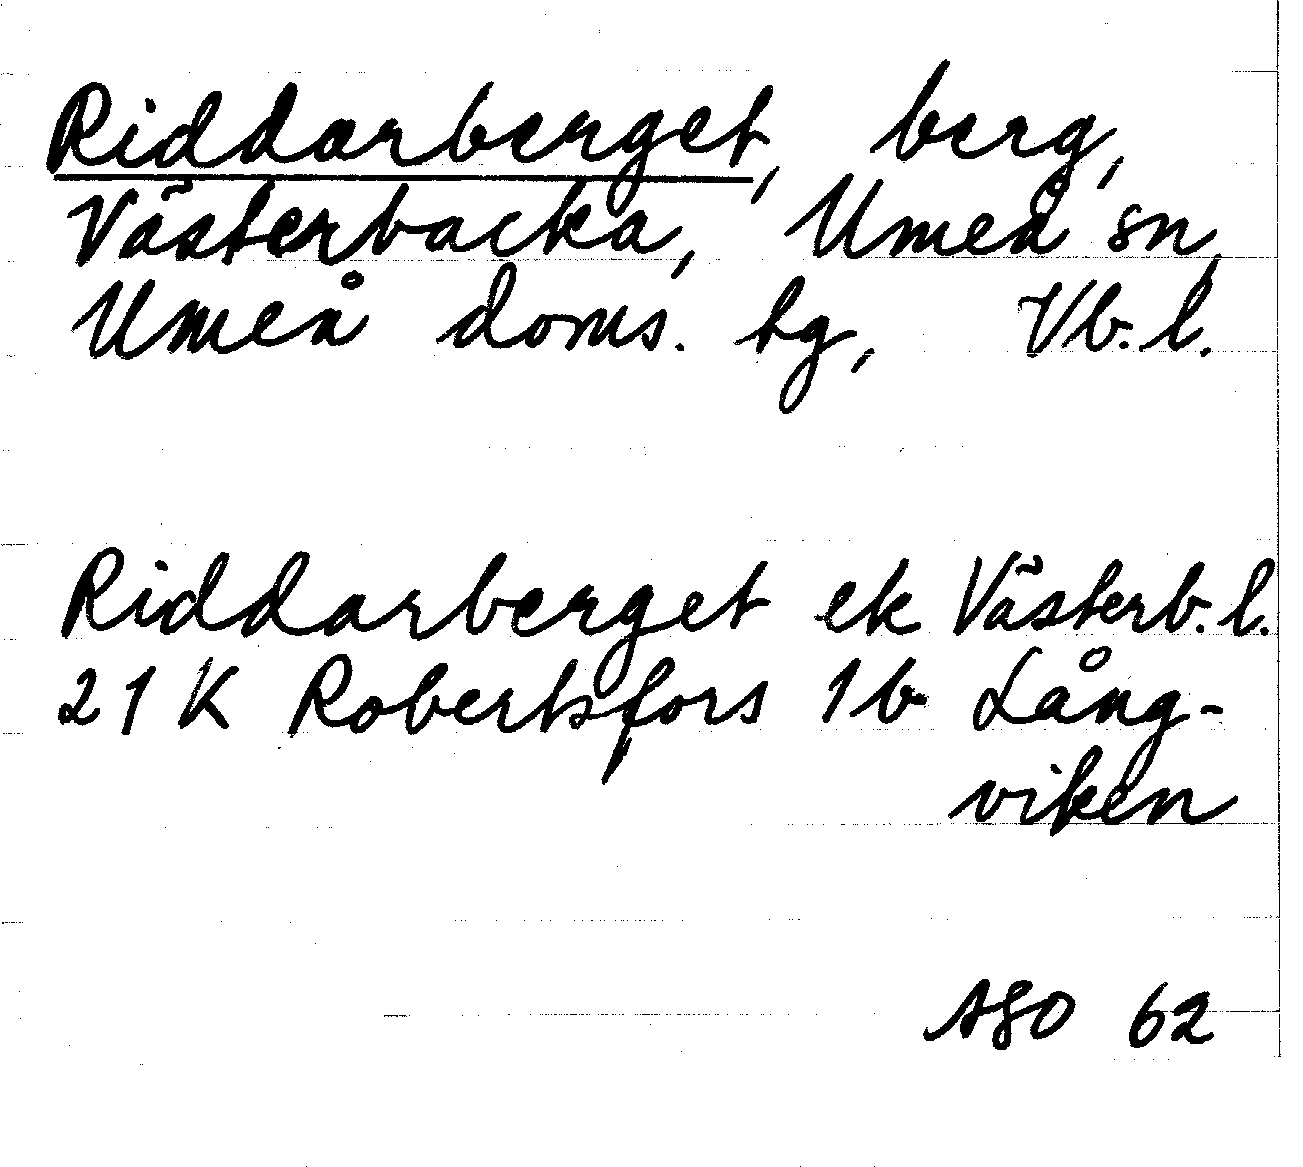 Riddarberget, berg,
Västerbacka, Umeå sn,
Umeå doms. tg, Vb. l.
Riddarberget ek Västerb. l.
21 K Robertsfors 1b Lång-
viken
62